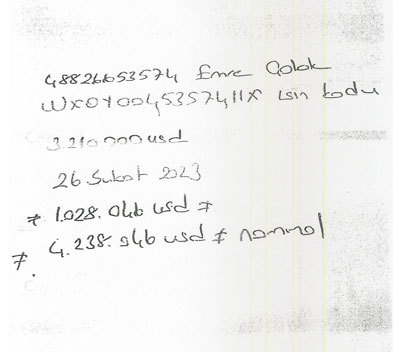 48826653574 Emre Çolak
WX01004535741HX Isin kodu
3.210.000 usd
26 Subat 2023
≠ 1.028.046 usd ≠
≠ 4.238.046 usd ≠ normal